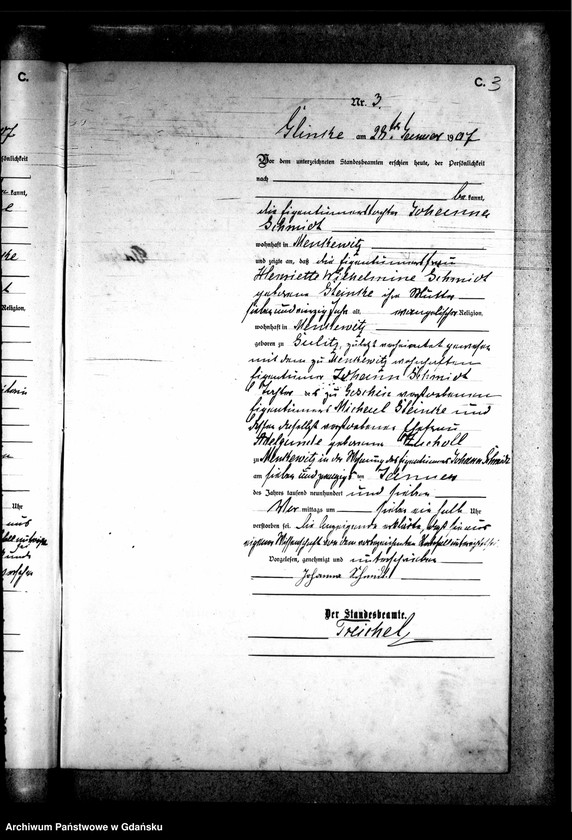 C.
C. 3
Nr. 3.
am 28ten Januar 1907
Vor dem unterzeichneten Standesbeamten erschien heute, der Persönlichkeit
nach
be kannt,
die Eigentümertochter Johanna
Schmidt
wohnhaft in Menkewitz
und zeigte an, daß die Eigentümerfrau
Henriette Wilhelmine Schmidt
geborene Gleinke ihre Mutter
sieben und Jahre alt, evangelischer Religion,
wohnhaft in Menkewitz
geboren zu zuletzt verheiratet gewesen
mit dem zu Menkewitz wohnhaften
Eigentümer Johann Schmidt
Tochter des zu verstorbenen
Eigentümers Michael Gleinke und
dessen daselbst verstorbenen Ehefrau
geborenen
zu Menkewitz in der Wohnung des Eigentümers Johann Schmidt
am sieben und zwanzigsten Januar
des Jahres tausend neunhundert und sieben
Vor mittags um sieben ein halb Uhr
verstorben sei. Die Anzeigende erklärte, daß sie aus
eigener Wissenschaft von dem vorbezeichneten Sterbefall unterrichtet sei.
Vorgelesen, genehmigt und unterschrieben
Johanna Schmidt
Der Standesbeamte.
Treichel
kannt,
Religion,
Uhr
Archiwum Państwowe w Gdańsku